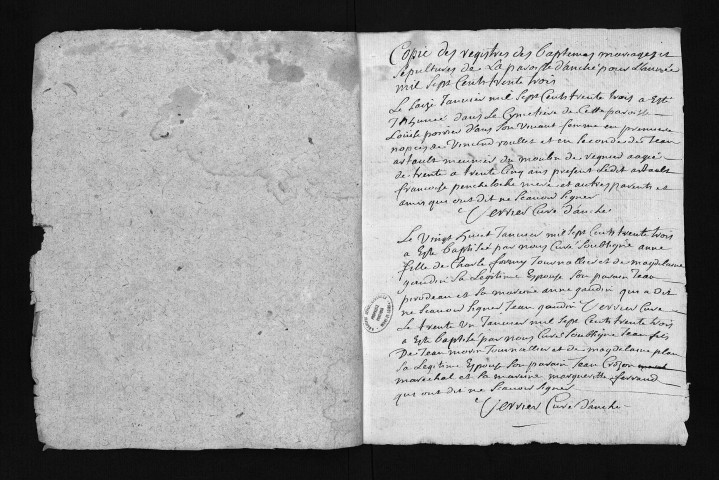 Copie des registres des baptemes mariages et
sepultures de La paroisse danché pour Lannée
mil sept Cents trente trois
Le Janvier mil sept Cents trente trois a Esté
Inhumée dans le Cemetiere de Cette paroisse
Louise poirier dans son vivant femme en premiere
nopces de Vincend roullet et en secondes de Jean
artault meunier du moulin de aagée
de trente a trente Cinq ans present Ledit artault
francoise mere et autres parents et
amis qui ont dit ne scavoir signer
Verrier Curé danché
Le Vingt huit Janvier mil sept Cents trente trois
a Esté Baptisée par nous Curé soubsigné anne
fille de Charle Journallier et de magdelaine
gaudin sa Legitime Epouse son parain Jean
et sa maraine anne gaudin qui a dit
ne scavoir signer Jean gaudin Verrier Curé
Le trente un Janvier mil sept Cents trente trois
a Esté baptisé par nous Curé soubsigné Jean fils
De Jean morin Journallier et de magdelaine
sa Legitime Epouse son parain Jean
marechal et sa maraine marguerite
qui ont dit ne scavoir signer
Verrier Curé danché